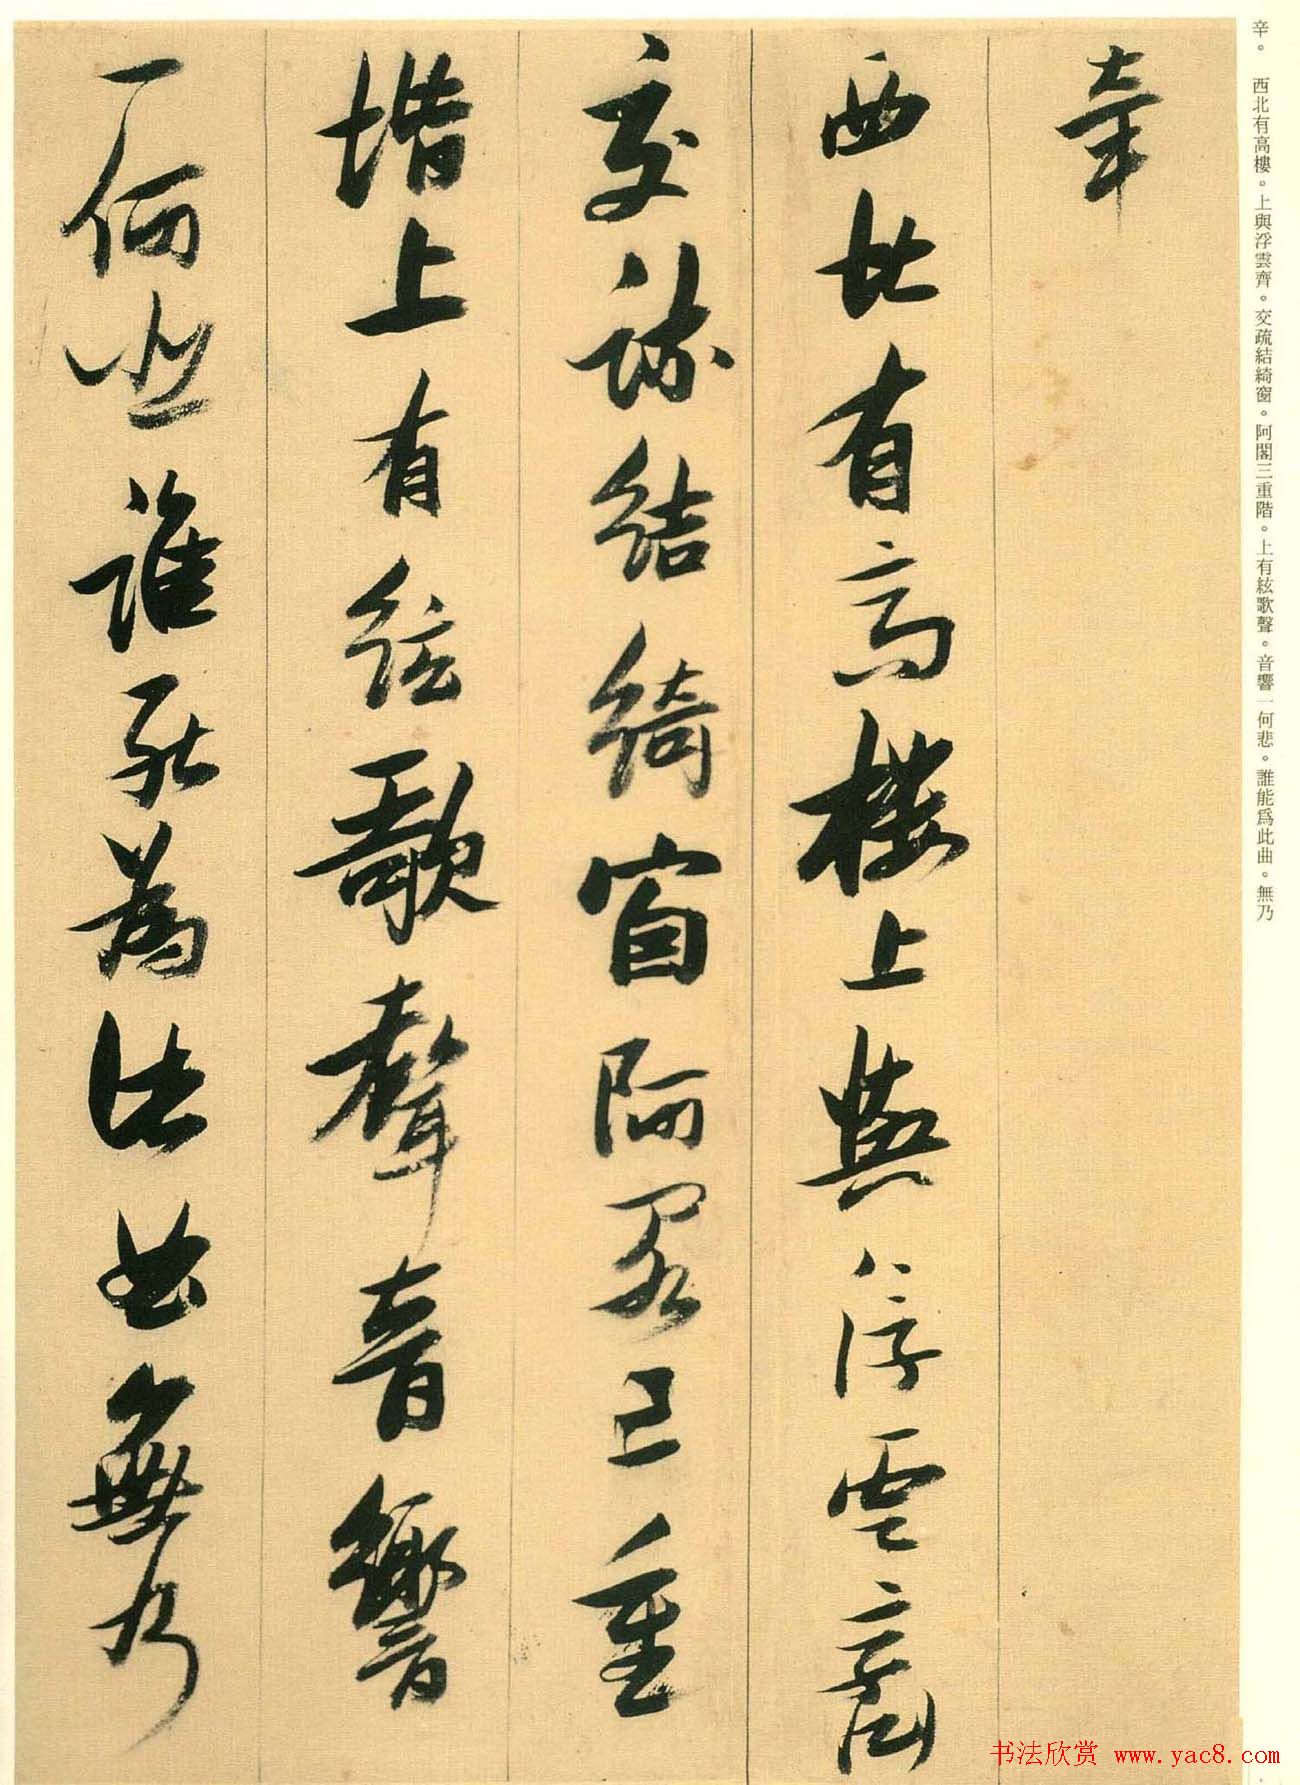 辛。 西北有高樓。上與浮雲齊。交疏結綺窗。阿閣三重階。上有絃歌聲。音響一何悲。誰能爲此曲。無乃
辛
西北有高樓上與浮雲齊
交疏結綺窗阿閣三重
堦上有絃歌聲音響
一何悲誰能為此曲無乃
书法欣赏 www.yac8.com